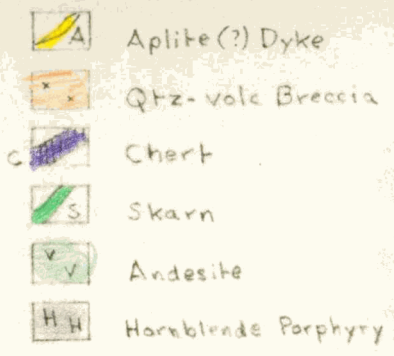 A Aplite (?) Dyke
x x Qtz-volc Breccia
C Chert
S Skarn
V V Andesite
H H Hornblende Porphyry